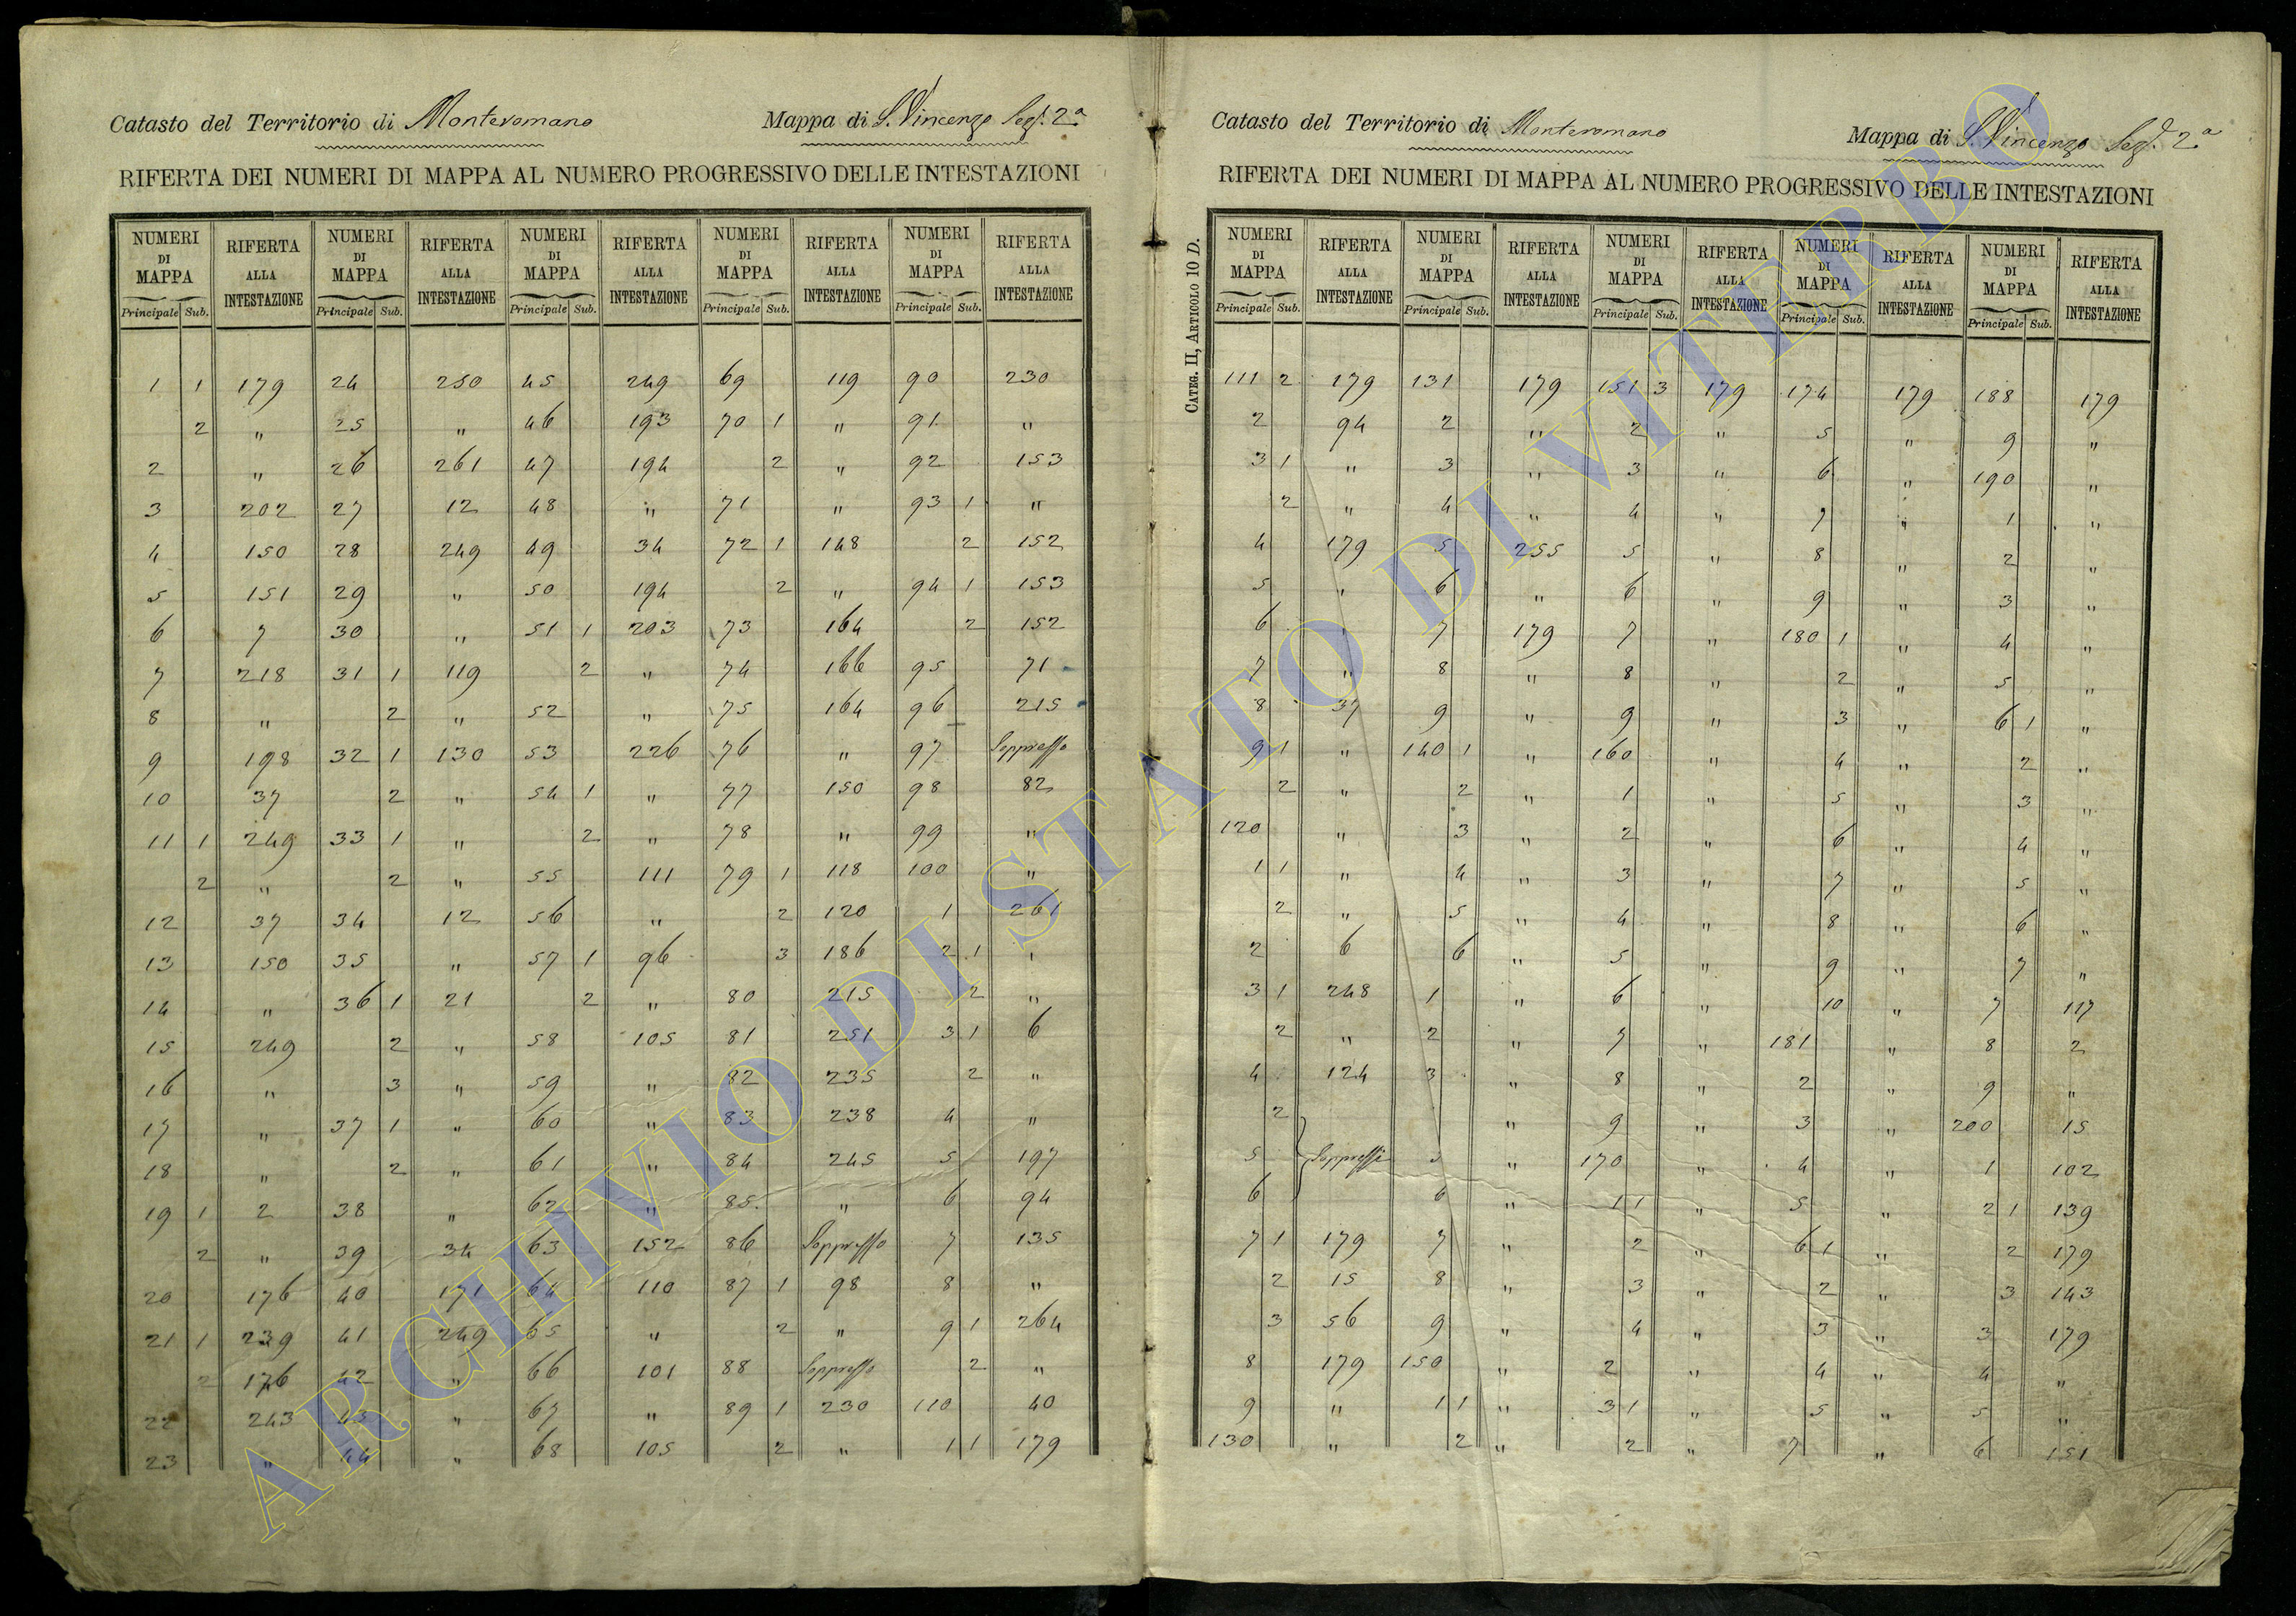 Catasto del Territorio di Monteromano Mappa di S. Vincenzo Sez. 2a
RIFERTA DEI NUMERI DI MAPPA AL NUMERO PROGRESSIVO DELLE INTESTAZIONI
NUMERI DI MAPPA RIFERTA ALLA INTESTAZIONE NUMERI DI MAPPA RIFERTA ALLA INTESTAZIONE NUMERI DI MAPPA RIFERTA ALLA INTESTAZIONE NUMERI DI MAPPA RIFERTA ALLA INTESTAZIONE NUMERI DI MAPPA RIFERTA ALLA INTESTAZIONE
Principale Sub. Principale Sub. Principale Sub. Principale Sub. Principale Sub.
1 1 179 24 250 45 249 69 119 90 230
2 " 25 " 46 193 70 1 " 91 "
2 " 26 261 47 194 2 " 92 153
3 202 27 12 48 " 71 " 93 1 "
4 150 28 249 49 34 72 1 148 2 152
5 151 29 " 50 194 2 " 94 1 153
6 7 30 " 51 1 203 73 164 2 152
7 218 31 1 119 2 " 74 166 95 71
8 " 2 " 52 " 75 164 96 215
9 198 32 1 130 53 226 76 " 97 Soppresso
10 37 2 " 54 1 " 77 150 98 82
11 1 249 33 1 " 2 " 78 " 99 "
2 " 2 " 55 111 79 1 118 100 "
12 37 34 12 56 " 2 120 1 261
13 150 35 " 57 1 96 3 186 2 1 "
14 " 36 1 21 2 " 80 215 2 "
15 249 2 " 58 105 81 251 3 1 6
16 " 3 " 59 " 82 235 2 "
17 " 37 1 " 60 " 83 238 4 "
18 " 2 " 61 " 84 245 5 197
19 1 2 38 " 62 " 85 " 6 94
2 " 39 34 63 152 86 Soppresso 7 135
20 176 40 171 64 110 87 1 98 8 "
21 1 239 41 249 65 " 2 " 9 1 264
2 176 42 " 66 101 88 Soppresso 2 "
22 243 43 " 67 " 89 1 230 110 40
23 " 44 " 68 105 2 " 1 1 179
Catasto del Territorio di Monteromano Mappa di S. Vincenzo Sez. 2a
RIFERTA DEI NUMERI DI MAPPA AL NUMERO PROGRESSIVO DELLE INTESTAZIONI
CATEG. II, ARTICOLO 10 D.
NUMERI DI MAPPA RIFERTA ALLA INTESTAZIONE NUMERI DI MAPPA RIFERTA ALLA INTESTAZIONE NUMERI DI MAPPA RIFERTA ALLA INTESTAZIONE NUMERI DI MAPPA RIFERTA ALLA INTESTAZIONE NUMERI DI MAPPA RIFERTA ALLA INTESTAZIONE
Principale Sub. Principale Sub. Principale Sub. Principale Sub. Principale Sub.
111 2 179 131 179 151 3 179 174 179 188 179
2 94 2 " 2 " 5 " 9 "
3 1 " 3 " 3 " 6 " 190 "
2 " 4 " 4 " 7 " 1 "
4 179 5 255 5 " 8 " 2 "
5 " 6 " 6 " 9 " 3 "
6 " 7 179 7 " 180 1 " 4 "
7 " 8 " 8 " 2 " 5 "
8 37 9 " 9 " 3 " 6 1 "
9 1 " 140 1 " 160 " 4 " 2 "
2 " 2 " 1 " 5 " 3 "
120 " 3 " 2 " 6 " 4 "
1 1 " 4 " 3 " 7 " 5 "
2 " 5 " 4 " 8 " 6 "
2 6 6 " 5 " 9 " 7 "
3 1 248 1 " 6 " 10 " 7 117
2 " 2 " 7 " 181 " 8 2
4 124 3 " 8 " 2 " 9 "
2 " 9 " 3 " 200 15
5 Soppressi 5 " 170 " 4 " 1 102
6 6 " 1 1 " 5 " 2 1 139
7 1 179 7 " 2 " 6 1 " 2 179
2 15 8 " 3 " 2 " 3 143
3 56 9 " 4 " 3 " 3 179
8 179 150 " 2 " 4 " 4 "
9 " 1 1 " 3 1 " 5 " 5 "
130 " 2 " 2 " 7 " 6 151
ARCHIVIO DI STATO DI VITERBO